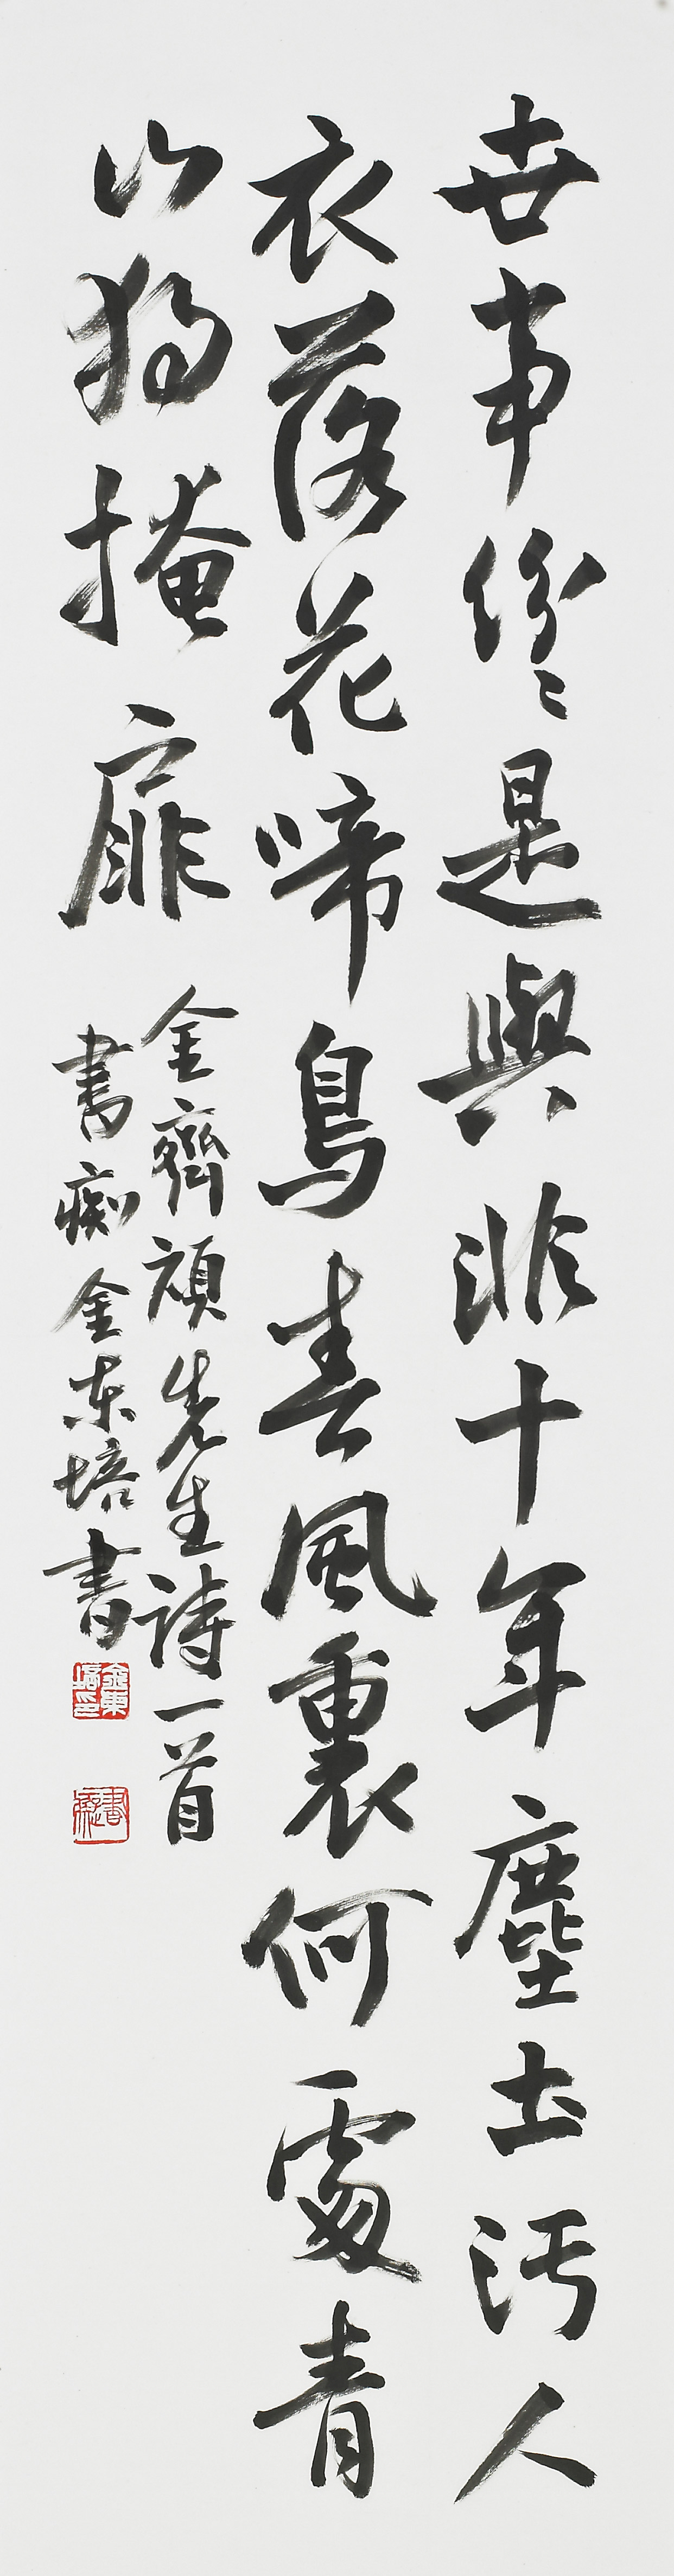 世事紛〻是與非十年塵土汚人
衣落花啼鳥春風裏何處青
山獨掩扉
金齊顔先生詩一首
書痴金东培書
金東培印
書痴